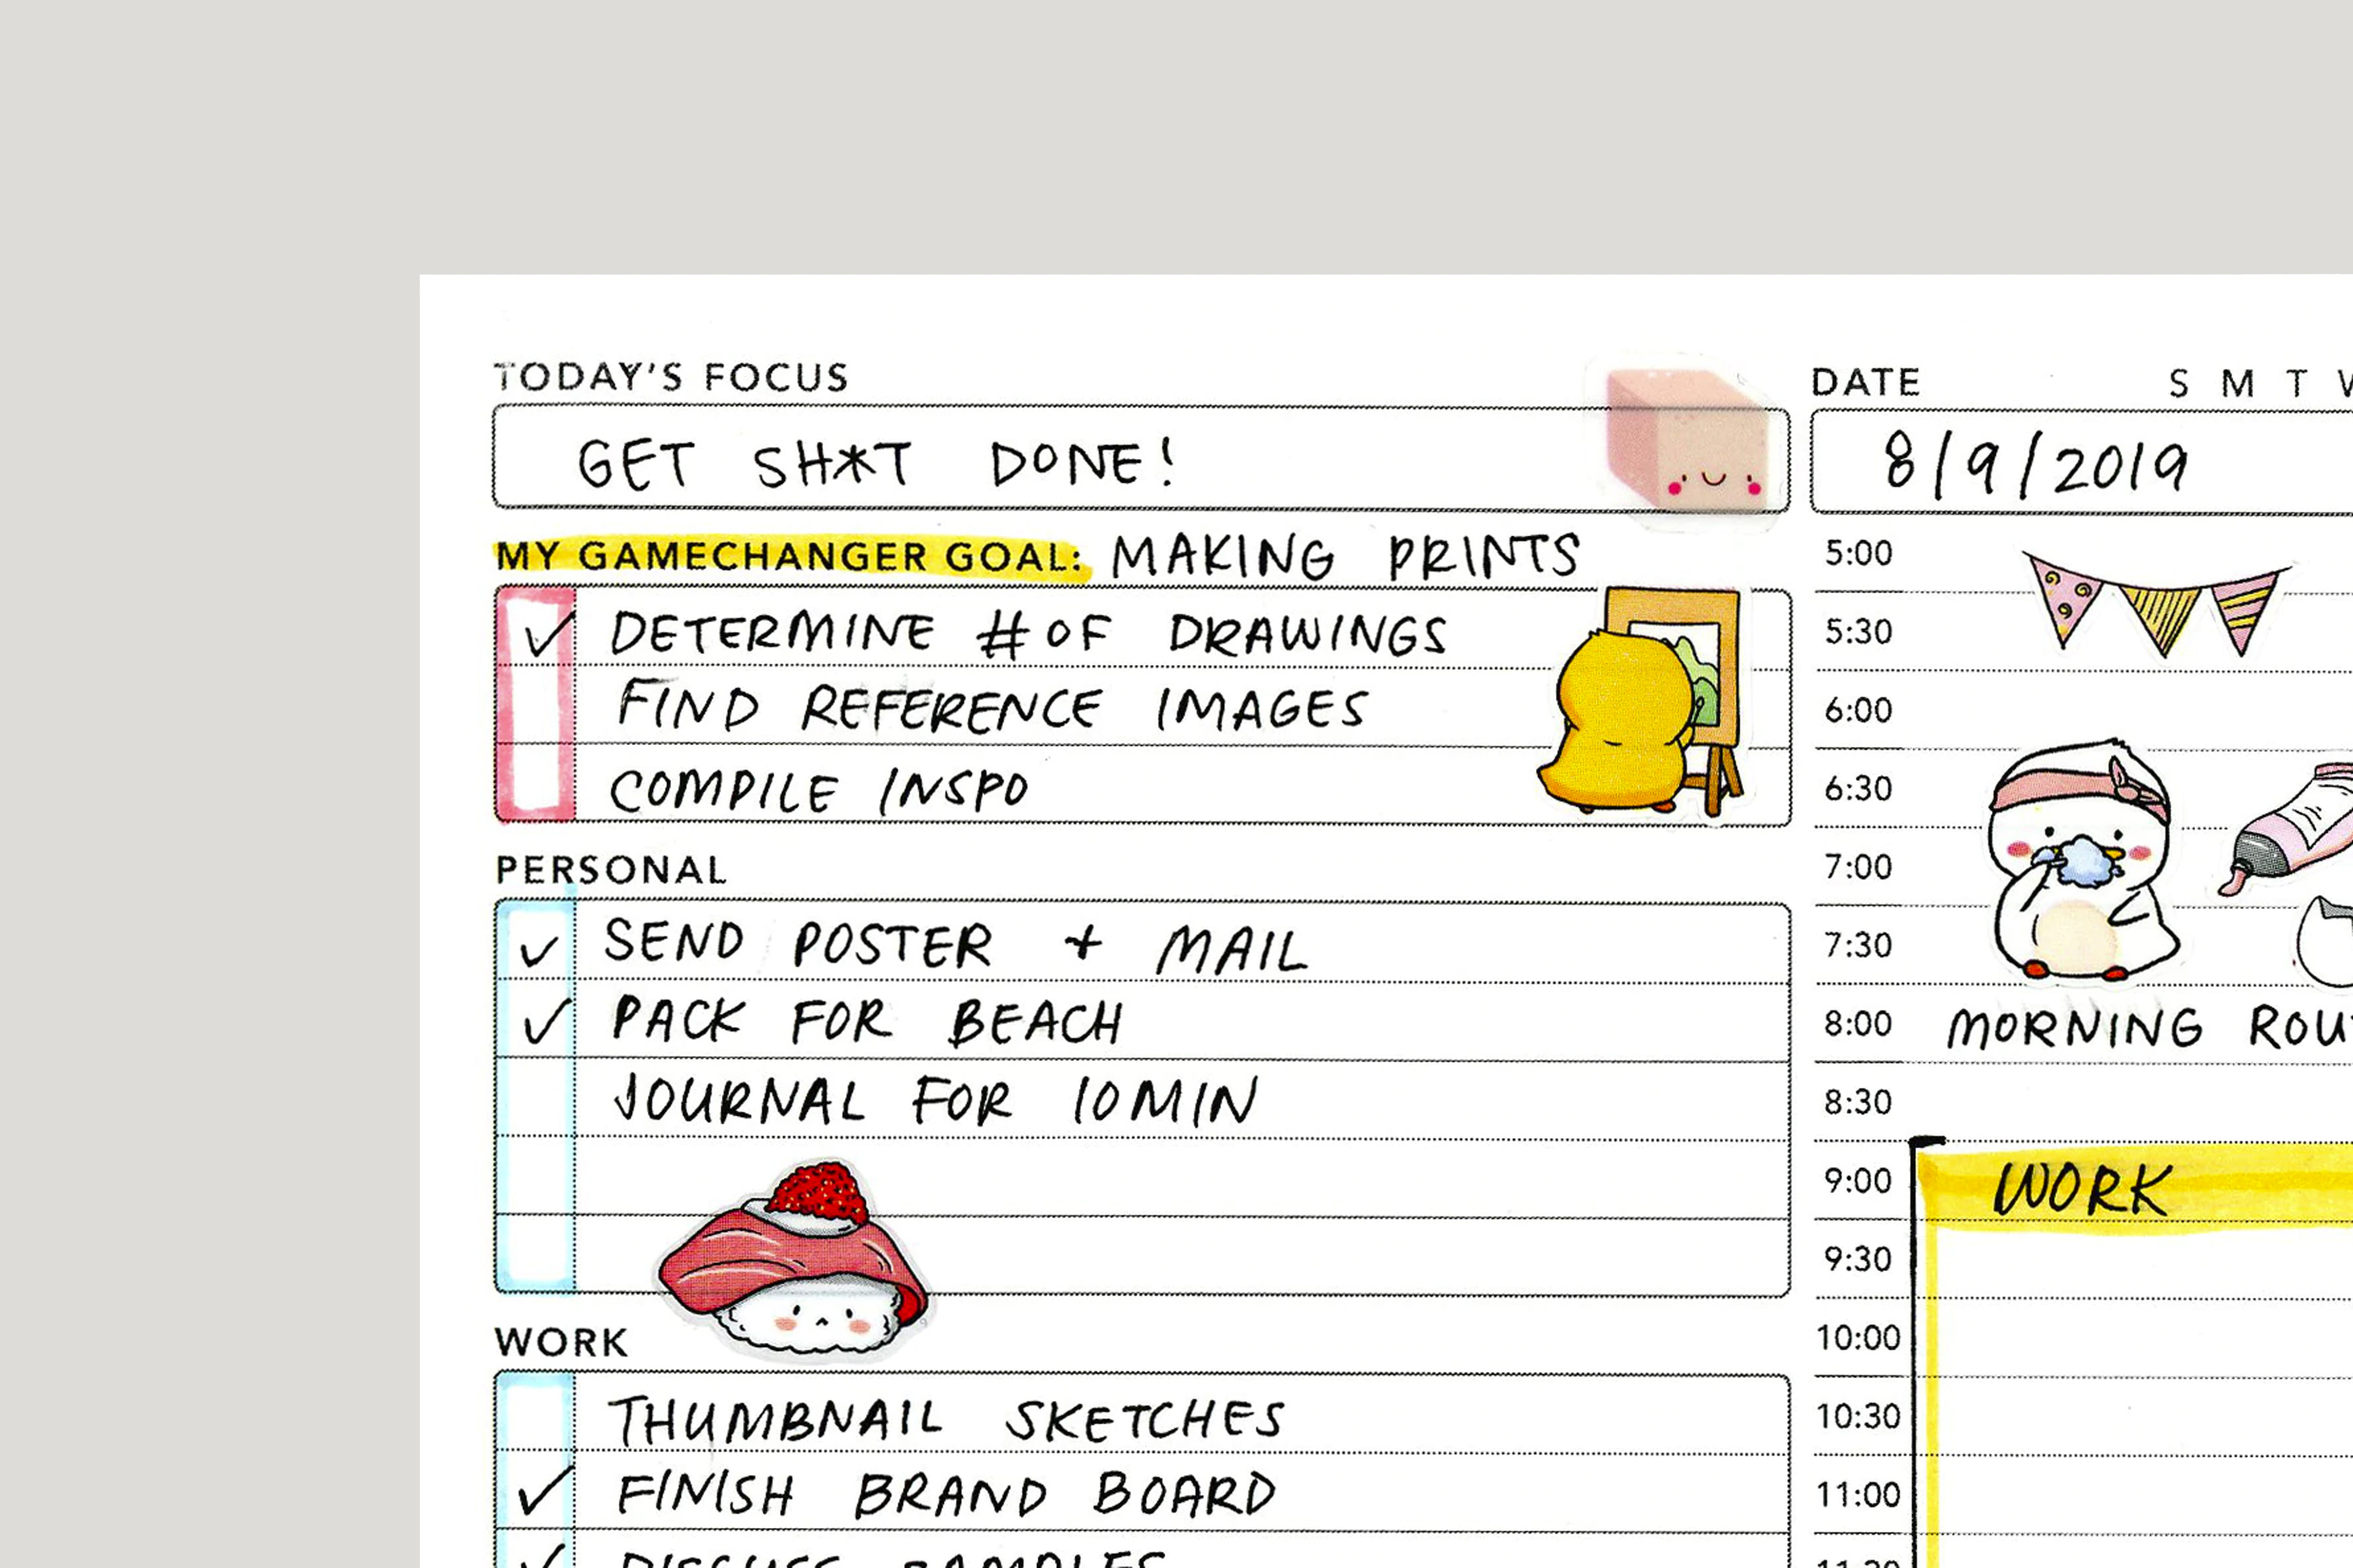 TODAY'S FOCUS
GET SH*T DONE!
MY GAMECHANGER GOAL: MAKING PRINTS
✓ DETERMINE # OF DRAWINGS
FIND REFERENCE IMAGES
COMPILE INSPO
PERSONAL
✓ SEND POSTER + MAIL
✓ PACK FOR BEACH
JOURNAL FOR 10 MIN
WORK
THUMBNAIL SKETCHES
✓ FINISH BRAND BOARD
✓ DISCUSS SAMPLES
DATE S M T
8/9/2019
5:00
5:30
6:00
6:30
7:00
7:30
8:00 MORNING
8:30
9:00 WORK
9:30
10:00
10:30
11:00
11:30